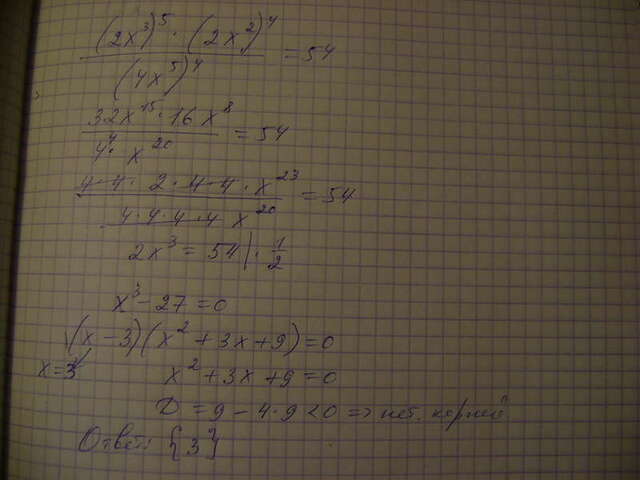 (2x³)⁵ · (2x²)⁴ / (4x⁵)⁴ = 54
32x¹⁵ · 16x⁸ / 4⁴ · x²⁰ = 54
4·4· 2·4·4· x²³ / 4·4·4·4 x²⁰ = 54
2x³ = 54 | · 1/2
x³ - 27 = 0
(x-3)(x² + 3x + 9) = 0
x=3 x² + 3x + 9 = 0
D = 9 - 4·9 < 0 => нет корней
Ответ: {3}